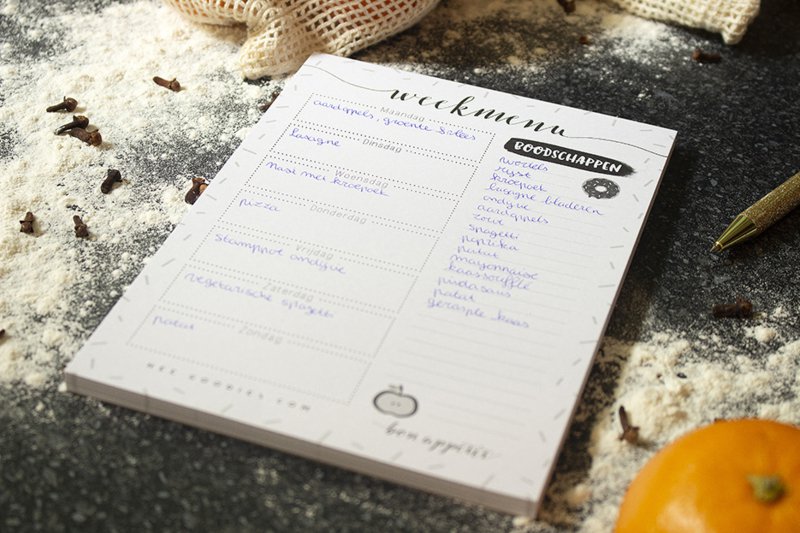 weekmenu
Maandag
aardappels, groente & vlees
Dinsdag
lasagne
Woensdag
Nasi met kroepoek
Donderdag
pizza
Vrijdag
stamppot andijvie
Zaterdag
vegetarische spagetti
Zondag
patat
BOODSCHAPPEN
wortels
rijst
kroepoek
lasagne bladeren
andijvie
aardappels
zout
spagetti
paprika
patat
mayonnaise
kaassoufflé
pindasaus
patat
geraspte kaas
bon appétit